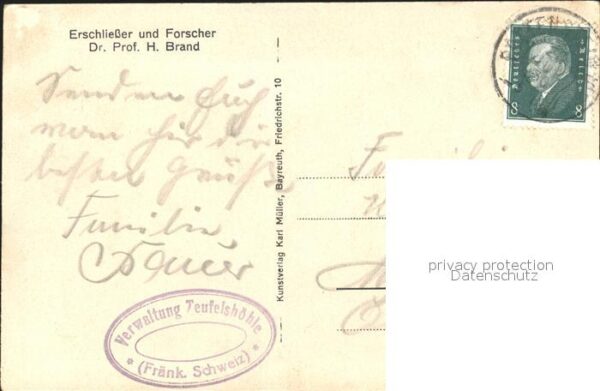 Erschließer und Forscher
Dr. Prof. H. Brand
Senden Euch
von hier die
besten Grüße
Familie
Kunstverlag Karl Müller, Bayreuth, Friedrichstr. 10
Verwaltung Teufelshöhle
* (Fränk. Schweiz) *
DEUTSCHES REICH
8 8
privacy protection
Datenschutz